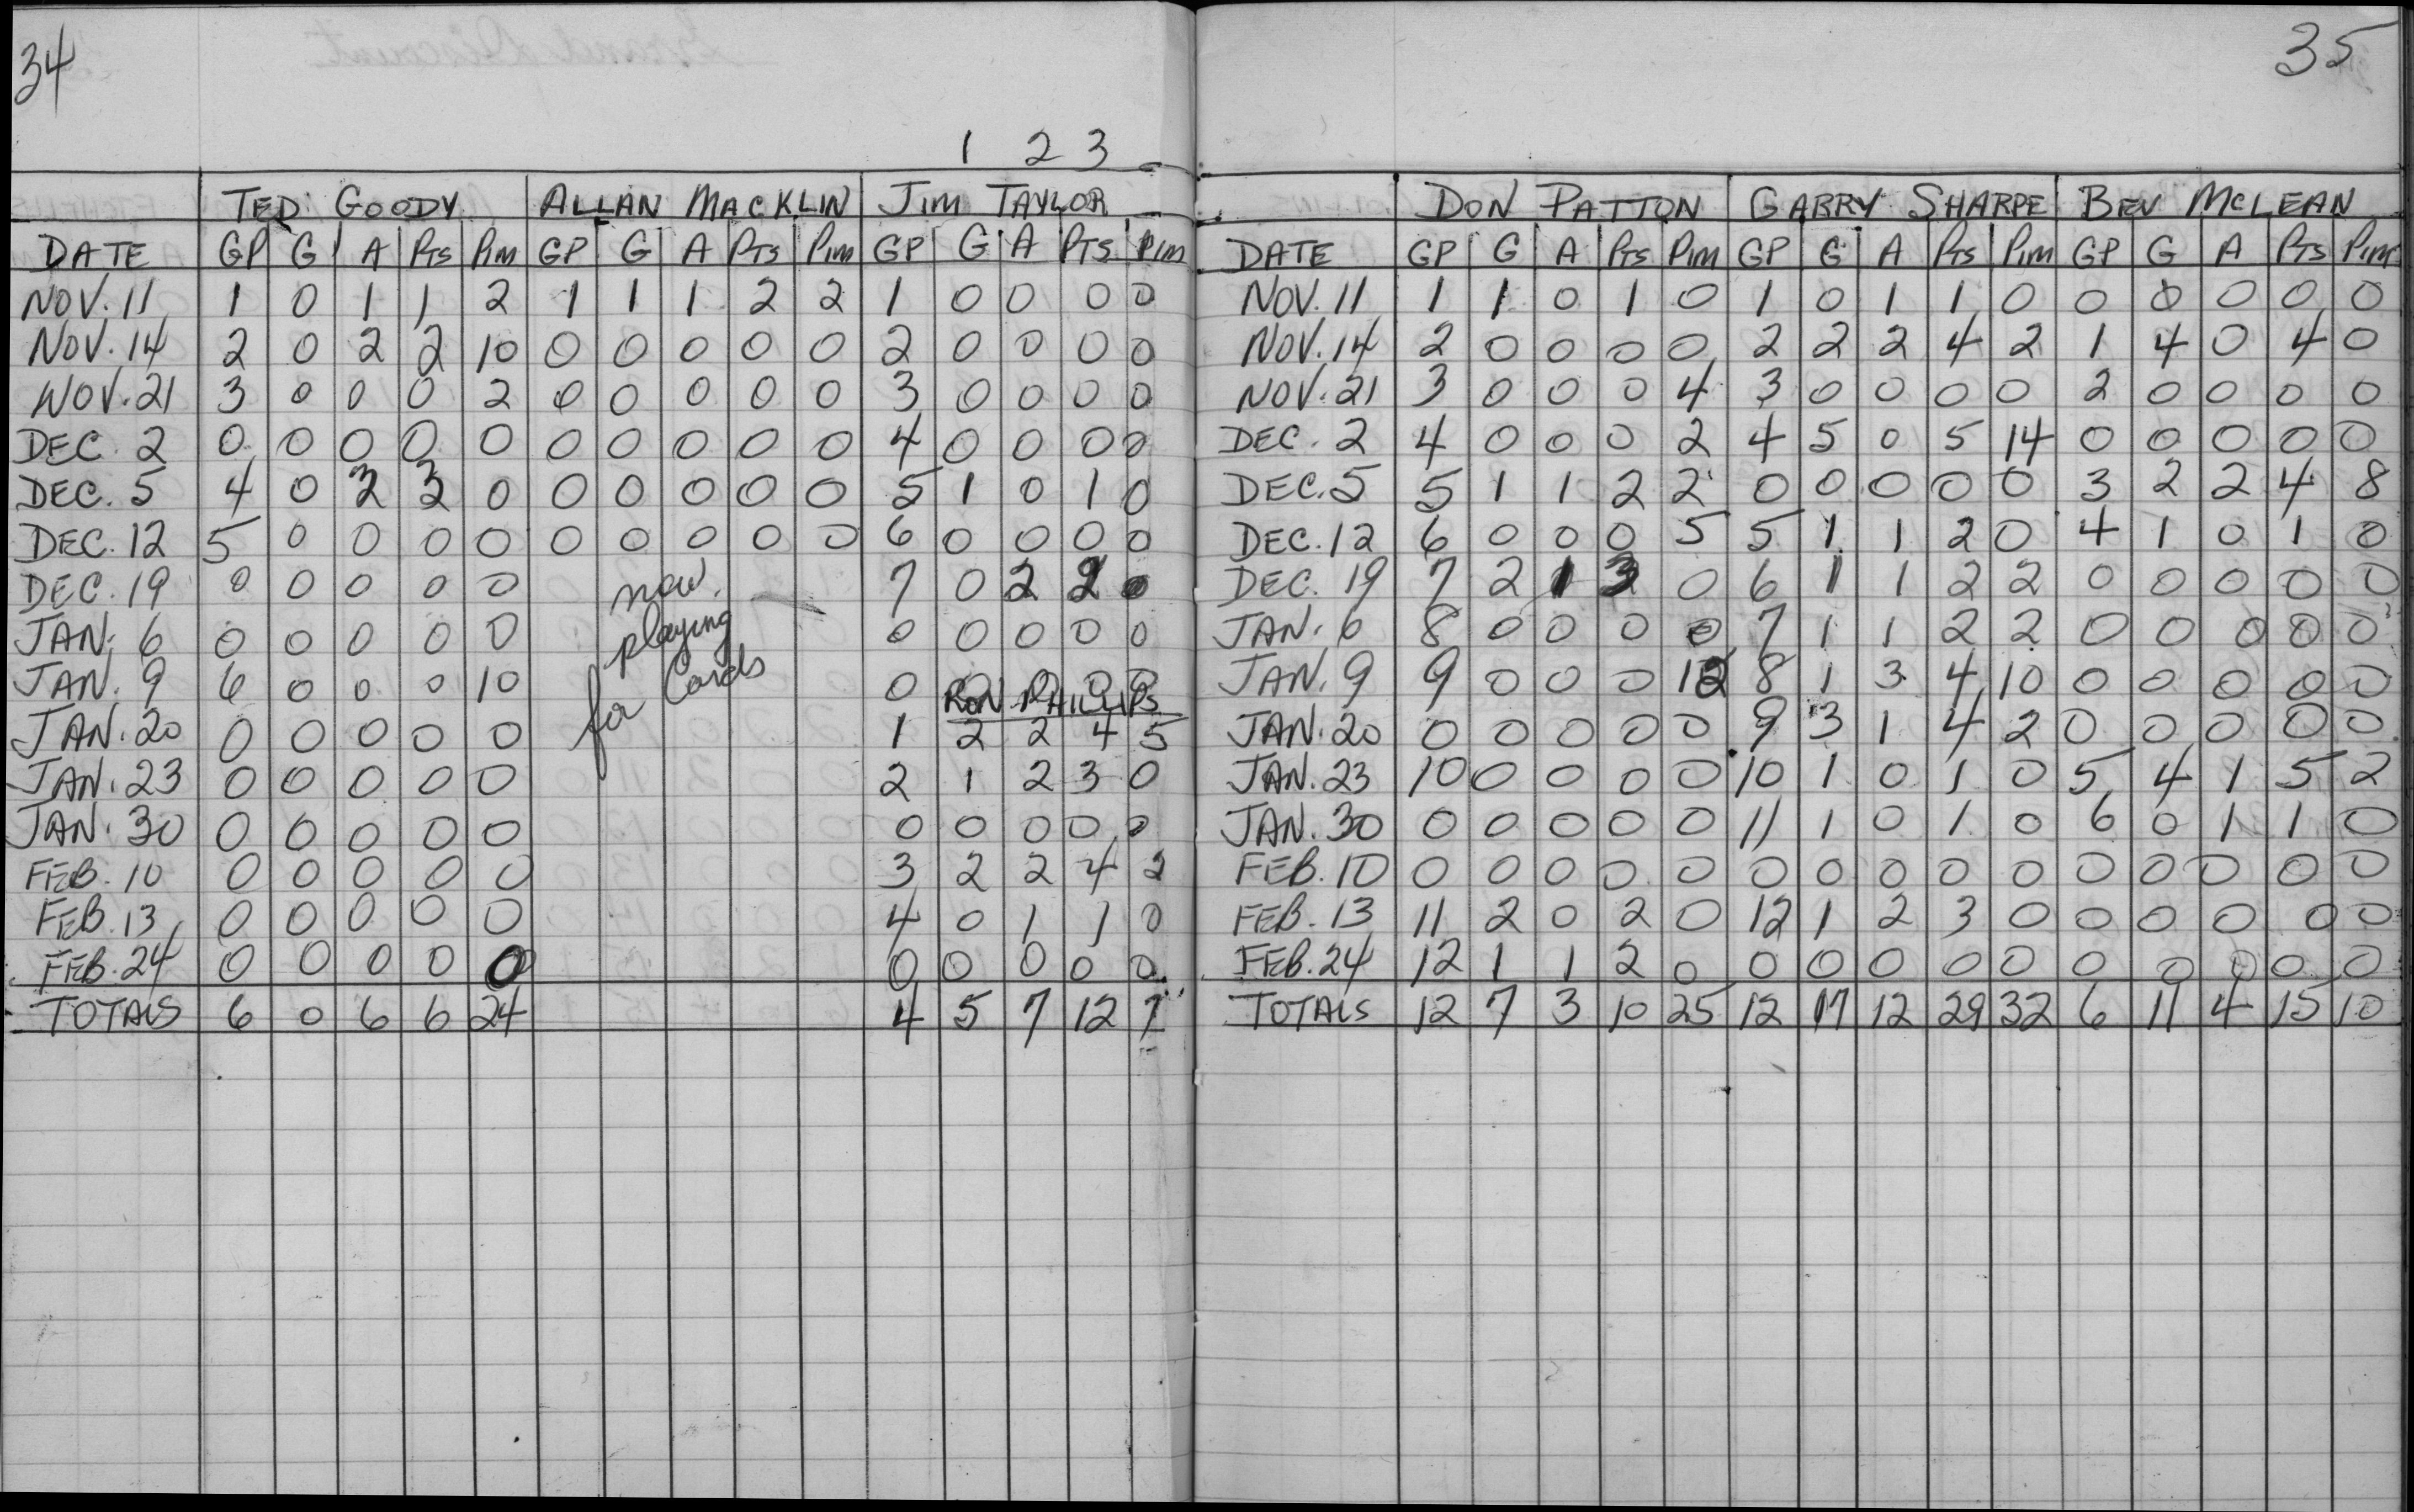 34
1 2 3
TED GOODY ALLAN MACKLIN JIM TAYLOR
DATE GP G A Pts Pim GP G A Pts Pim GP G A PTS Pim
NOV. 11 1 0 1 1 2 1 1 1 2 2 1 0 0 0 0
NOV. 14 2 0 2 2 10 0 0 0 0 0 2 0 0 0 0
NOV. 21 3 0 0 0 2 0 0 0 0 0 3 0 0 0 0
DEC. 2 0 0 0 0 0 0 0 0 0 0 4 0 0 0 0
DEC. 5 4 0 3 3 0 0 0 0 0 0 5 1 0 1 0
DEC. 12 5 0 0 0 0 0 0 0 0 0 6 0 0 0 0
DEC. 19 0 0 0 0 0 now 7 0 2 2 0
JAN. 6 0 0 0 0 0 playing 0 0 0 0 0
JAN. 9 6 0 0 0 10 for Cards 0 0 0 0 0
RON PHILLIPS
JAN. 20 0 0 0 0 0 1 2 2 4 5
JAN. 23 0 0 0 0 0 2 1 2 3 0
JAN. 30 0 0 0 0 0 0 0 0 0 0
FEB. 10 0 0 0 0 0 3 2 2 4 2
FEB. 13 0 0 0 0 0 4 0 1 1 0
FEB. 24 0 0 0 0 0 0 0 0 0 0
TOTALS 6 0 6 6 24 4 5 7 12 7
35
DON PATTON GARRY SHARPE BEV MCLEAN
DATE GP G A Pts Pim GP G A Pts Pim GP G A Pts Pim
NOV. 11 1 1 0 1 0 1 0 1 1 0 0 0 0 0 0
NOV. 14 2 0 0 0 0 2 2 2 4 2 1 4 0 4 0
NOV. 21 3 0 0 0 4 3 0 0 0 0 2 0 0 0 0
DEC. 2 4 0 0 0 2 4 5 0 5 14 0 0 0 0 0
DEC. 5 5 1 1 2 2 0 0 0 0 0 3 2 2 4 8
DEC. 12 6 0 0 0 5 5 1 1 2 0 4 1 0 1 0
DEC. 19 7 2 1 3 0 6 1 1 2 2 0 0 0 0 0
JAN. 6 8 0 0 0 0 7 1 1 2 2 0 0 0 0 0
JAN. 9 9 0 0 0 12 8 1 3 4 10 0 0 0 0 0
JAN. 20 0 0 0 0 0 9 3 1 4 2 0 0 0 0 0
JAN. 23 10 0 0 0 0 10 1 0 1 0 5 4 1 5 2
JAN. 30 0 0 0 0 0 11 1 0 1 0 6 0 1 1 0
FEB. 10 0 0 0 0 0 0 0 0 0 0 0 0 0 0 0
FEB. 13 11 2 0 2 0 12 1 2 3 0 0 0 0 0 0
FEB. 24 12 1 1 2 0 0 0 0 0 0 0 0 0 0 0
TOTALS 12 7 3 10 25 12 17 12 29 32 6 11 4 15 10